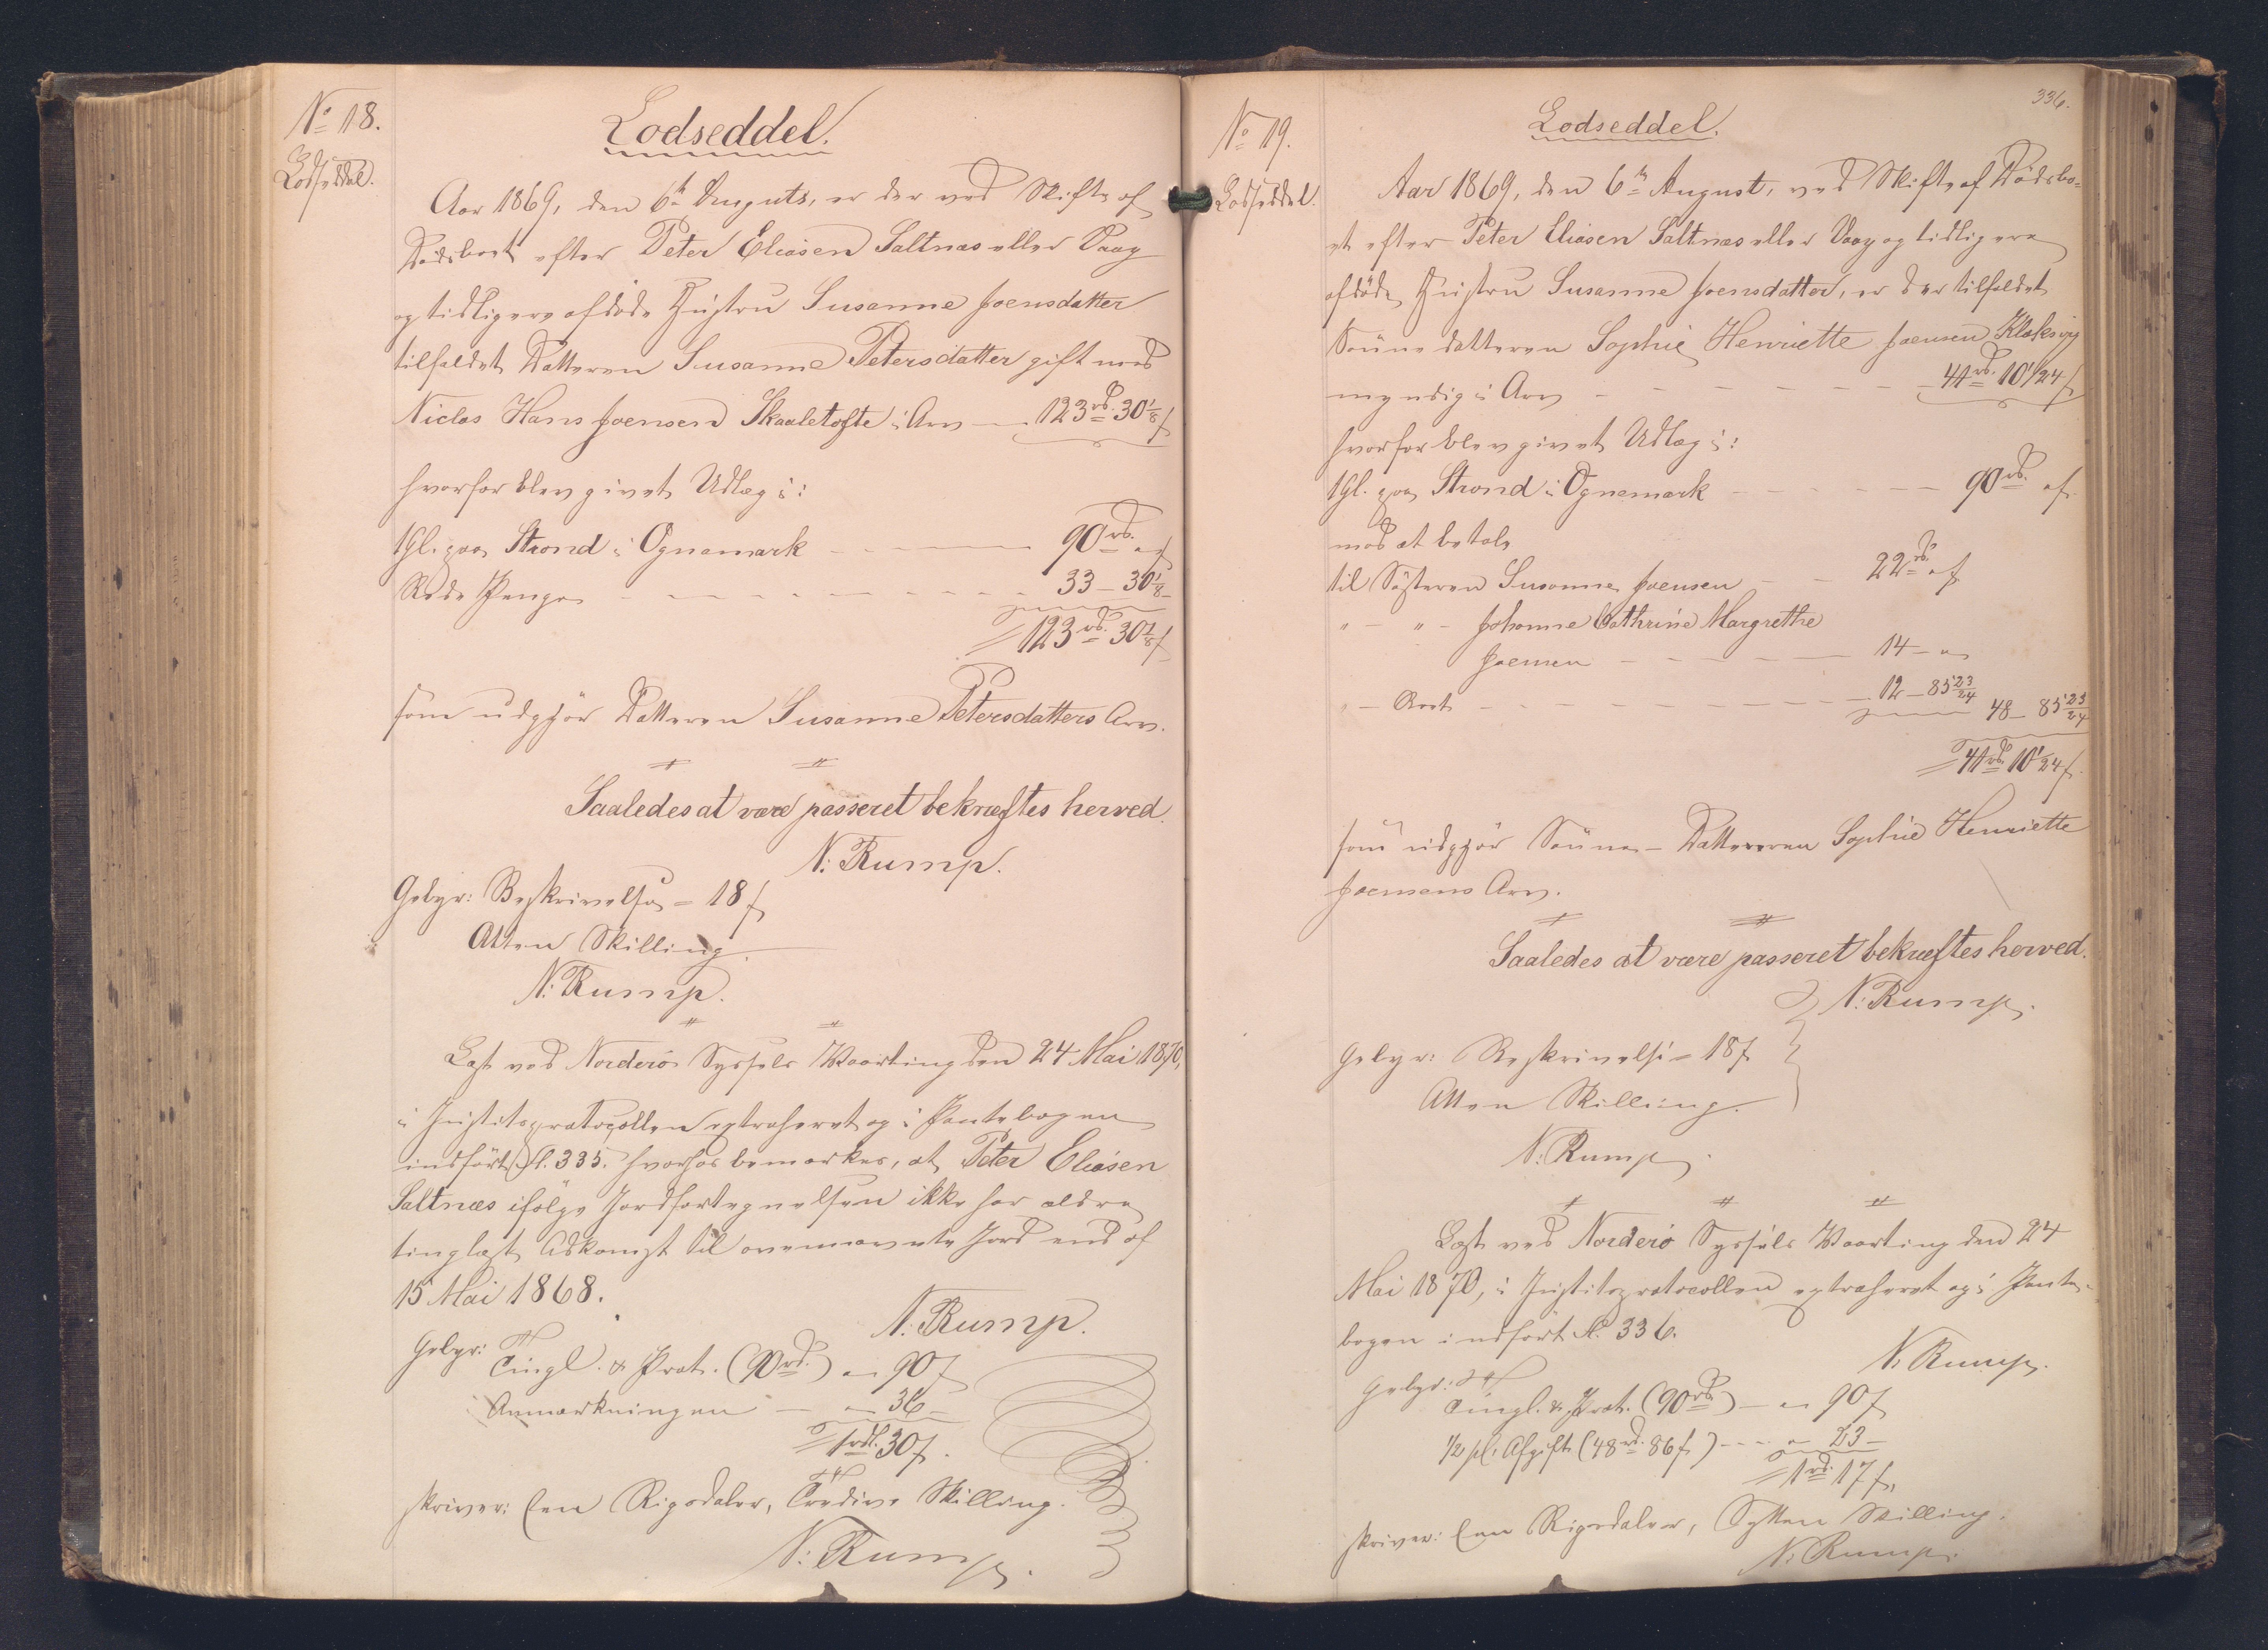 No 18.
Lodseddel.
Lodseddel.
Aar 1869, den 6te Auguts, er der ved Skifte af
Dødsboet efter Peter Eliasen Saltnæs eller Vaag
og tidligere afdøde Hustru Susanne Joensdatter
tilfaldet Datteren Susanne Petersdatter gift med
Niclas Hans Joensen Skaaletofte i Arv — 123 rd. 30 1/8 ß
hvorfor blev givet Udlæg i:
1 Gl. paa Strond i Ognemark — 90 rd. " ß
Rede Penge — 33 — 30 1/8 —
123 rd. 30 1/8 ß
som udgjør Datteren Susanne Petersdatters Arv.
Saaledes at være passeret bekræftes herved.
N. Rump.
Gebyr: Beskrivelse = 18 ß
Atten Skilling.
N. Rump.
Læst ved Norderø Syssels Vaarting den 24 Mai 1870,
i Justitsprotocollen extraheret og i Pantebogen
indført Fl. 335. hvorhos bemærkes, at Peter Eliasen
Saltnæs ifølge Jordfortegnelsen ikke har ældre
tinglæst Adkomst til ovennævnte Jord end af
15 Mai 1868.
N. Rump.
Gebyr: Tingl. & Prot. (90 rd.) " 90 ß
Anmærkningen — " 36 —
1 rdl. 30 ß.
skriver: Een Rigsdaler, Tredive Skilling.
N. Rump.
336.
No 19.
Lodseddel.
Lodseddel.
Aar 1869, den 6te August, ved Skifte af Dødsbo-
et efter Peter Eliasen Saltnæs eller Vaag og tidligere
afdøde Hustru Susanne Joensdatter, er der tilfaldet
Sønnedatteren Sophie Henriette Joensen Klaksvig
myndig i Arv — 41 rd. 10 1/24 ß
hvorfor blev givet Udlæg i:
1 Gl. paa Strond i Ognemark — 90 rd. " ß.
mod at betale
til Søsteren Susanne Joensen — 22 rd. " ß
" — " — Johanne Cathrine Margrethe
Joensen — 14 — "
" — Boet — 12 — 85 23/24 48 — 85 23/24
41 rd. 10 1/24 ß.
som udgjør Sønne-Datteren Sophie Henriette
Joensens Arv.
Saaledes at være passeret bekræftes herved.
N. Rump.
Gebyr: Beskrivelse = 18 ß
Atten Skilling.
N. Rump.
Læst ved Norderø Syssels Vaarting den 24
Mai 1870, i Justitsprotocollen extraheret og i Pante-
bogen indført Fl. 336.
N. Rump.
Gebyr: Tingl. & Prot. (90 rd.) — " 90 ß
1/2 pC. Afgift (48 rd. 86 ß) — " 23 —
1 rd. 17 ß,
skriver: Een Rigsdaler, Sytten Skilling.
N. Rump.